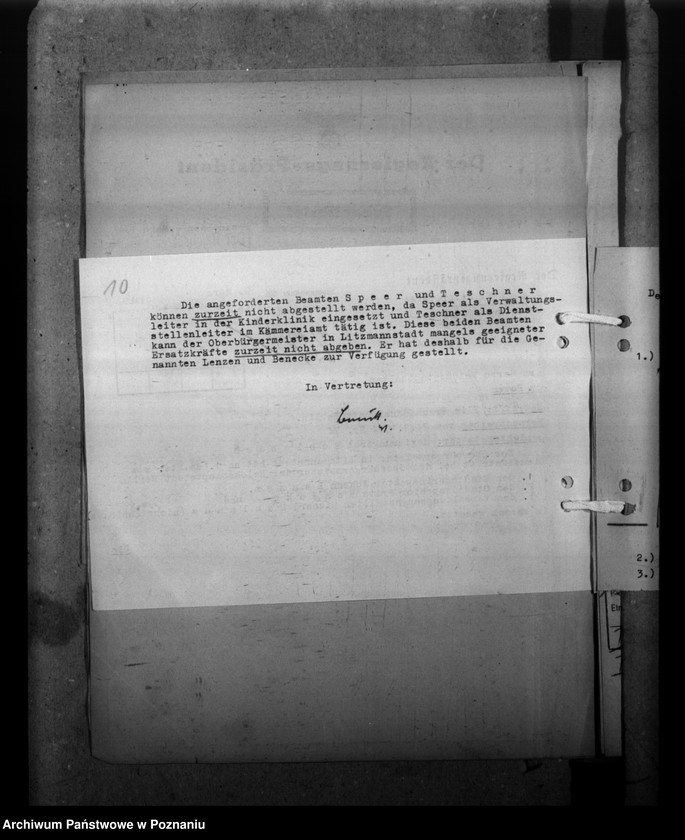 10
Die angeforderten Beamten S p e e r und T e s c h n e r
können zurzeit nicht abgestellt werden, da Speer als Verwaltungs-
leiter in der Kinderklinik eingesetzt und Teschner als Dienst-
stellenleiter im Kämmereiamt tätig ist. Diese beiden Beamten
kann der Oberbürgermeister in Litzmannstadt mangels geeigneter
Ersatzkräfte zurzeit nicht abgeben. Er hat deshalb für die Ge-
nannten Lenzen und Benecke zur Verfügung gestellt.
In Vertretung:
1.)
2.)
3.)
Der Regierungs-Präsident
Archiwum Państwowe w Poznaniu